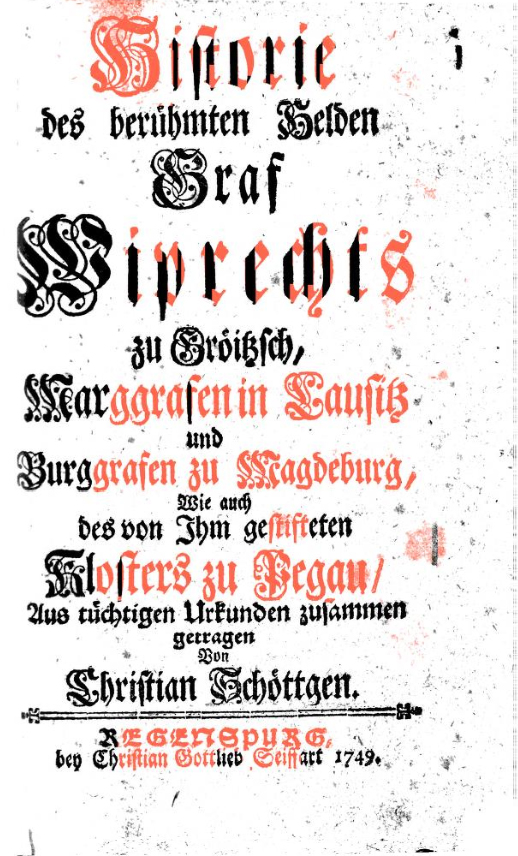 Historie
des berühmten Helden
Graf
Wiprechts
zu Gröitzsch,
Marggrafen in Lausitz
und
Burggrafen zu Magdeburg,
Wie auch
des von Ihm gestifteten
Klosters zu Pegau/
Aus tüchtigen Urkunden zusammen
getragen
Von
Christian Schöttgen.
REGENSPURG,
bey Christian Gottlieb Seiffart 1749.